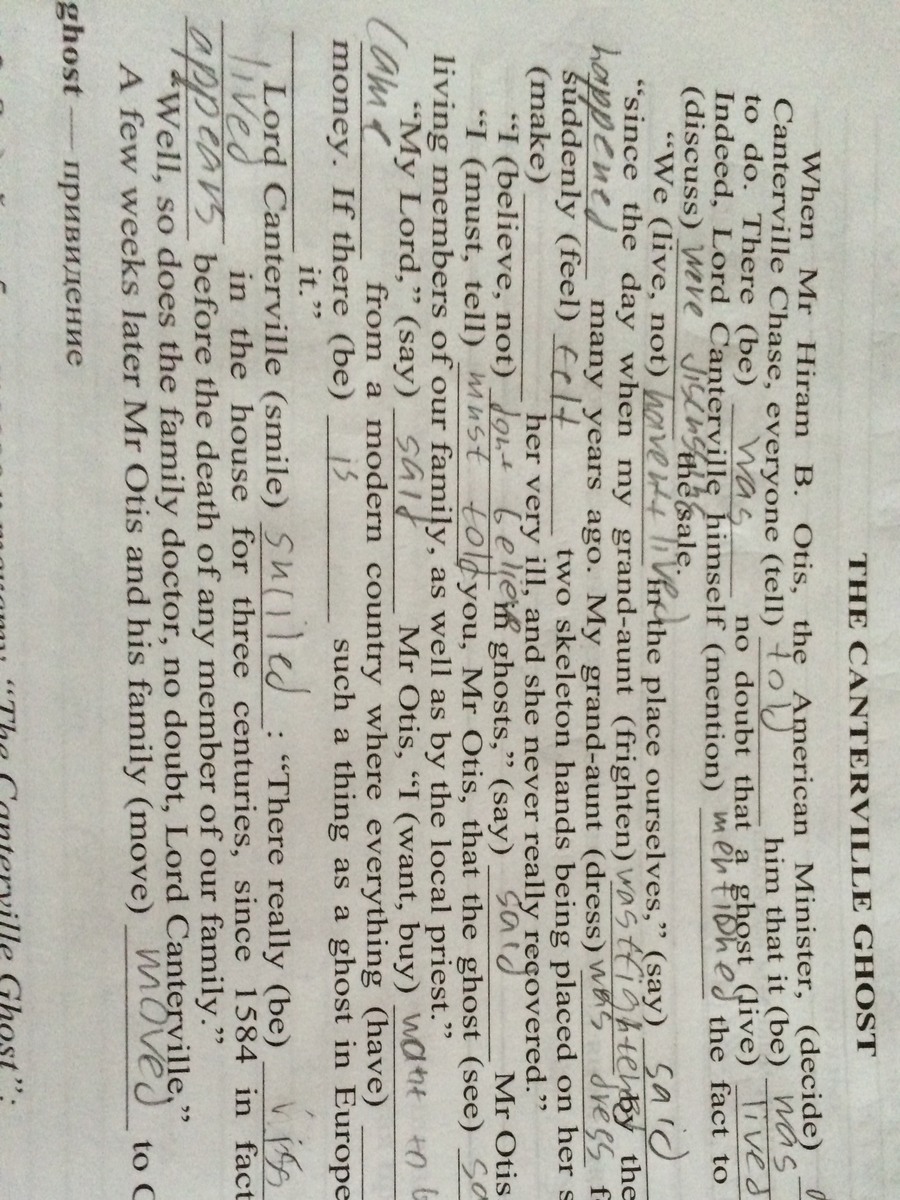 THE CANTERVILLE GHOST
When Mr Hiram B. Otis, the American Minister, (decide)
Canterville Chase, everyone (tell) told him that it (be) was
to do. There (be) was no doubt that a ghost (live) lived
Indeed, Lord Canterville himself (mention) mentioned the fact to
(discuss) the sale.
"We (live, not) havent lived in the place ourselves," (say) said
"since the day when my grand-aunt (frighten) by the
happened many years ago. My grand-aunt (dress) was dress
suddenly (feel) felt two skeleton hands being placed on her s
(make) her very ill, and she never really recovered."
"I (believe, not) dont believe in ghosts," (say) said Mr Otis
"I (must, tell) must told you, Mr Otis, that the ghost (see)
living members of our family, as well as by the local priest."
"My Lord," (say) said Mr Otis, "I (want, buy) want to
came from a modern country where everything (have)
money. If there (be) is such a thing as a ghost in Europe
it."
Lord Canterville (smile) smiled : "There really (be)
lived in the house for three centuries, since 1584 in fact
appears before the death of any member of our family."
"Well, so does the family doctor, no doubt, Lord Canterville,"
A few weeks later Mr Otis and his family (move) moved to C
ghost — привидение
"The Canterville Ghost":